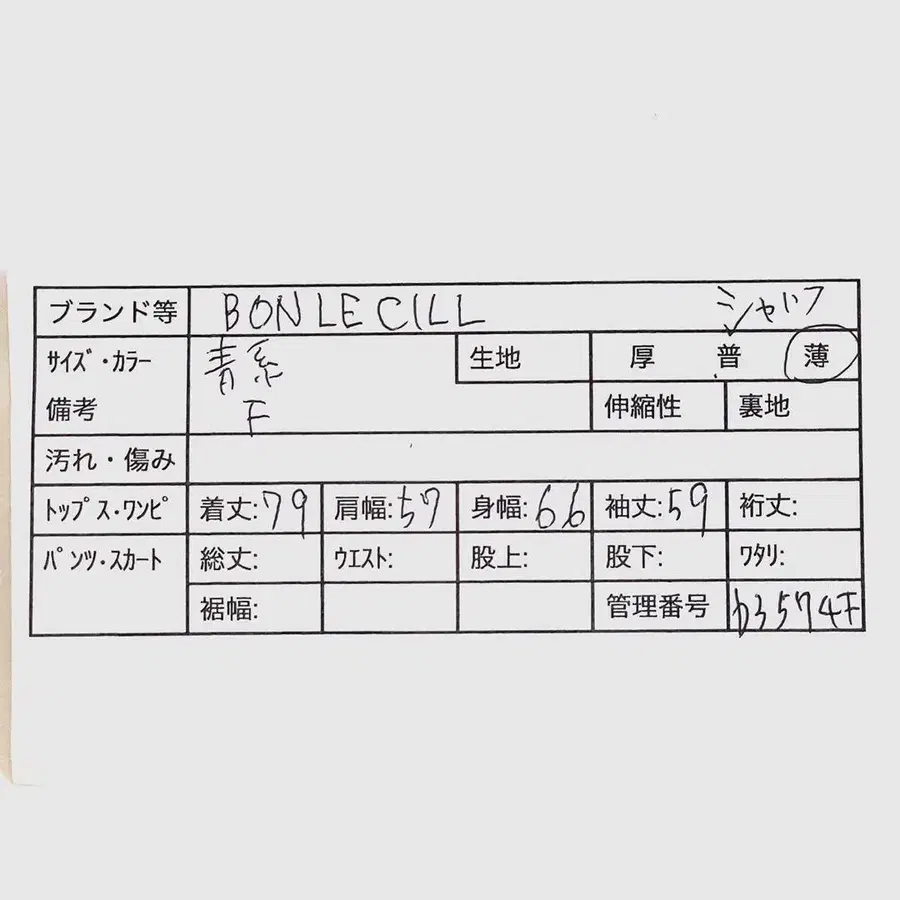 ブランド等 BON LE CILL シャツ
サイズ・カラー 青系 生地 厚 普 薄
備考 F 伸縮性 裏地
汚れ・傷み
トップス・ワンピ 着丈:79 肩幅:57 身幅:66 袖丈:59 裄丈:
パンツ・スカート 総丈: ウエスト: 股上: 股下: ワタリ:
裾幅: 管理番号 b3574F